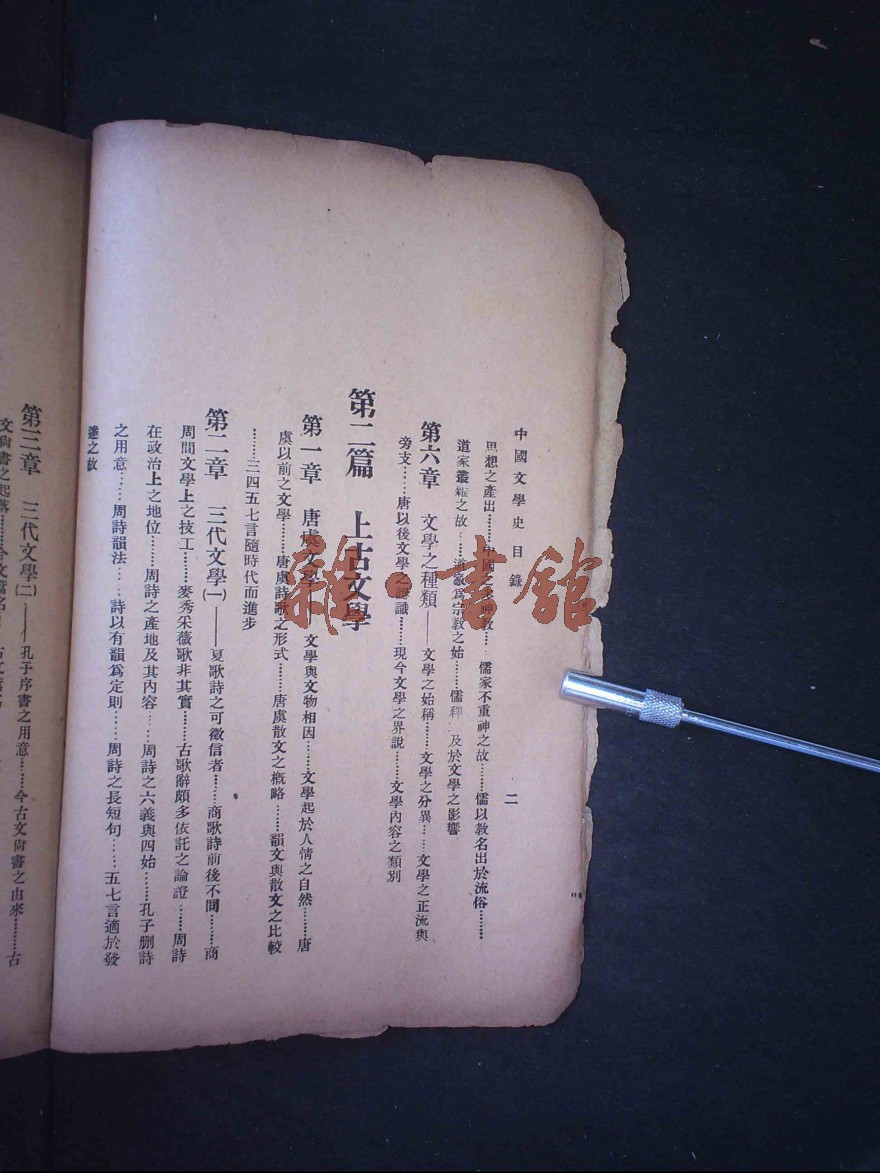 中國文學史 目錄
二
思想之產出……中國之多神教……儒家不重神之故……儒以教名出於流俗……
道家叢雜之故……道家為宗教之始……儒釋 及於文學之影響
第六章 文學之種類——文學之始稱……文學之分異……文學之正流與
旁支……唐以後文學之 識……現今文學之界說……文學內容之類別
第二篇 上古文學
第一章 唐虞文學——文學與文物相因……文學起於人情之自然……唐
虞以前之文學……唐虞詩歌之形式……唐虞散文之概略……韻文與散文之比較
……三四五七言隨時代而進步
第二章 三代文學(一)——夏歌詩之可徵信者……商歌詩前後不聞……商
周間文學上之技工……麥秀采薇歌非其實……古歌辭頗多依託之論證……周詩
在政治上之地位……周詩之產地及其內容……周詩之六義與四始……孔子刪詩
之用意……周詩韻法……詩以有韻爲定則……周詩之長短句……五七言適於發
達之故
第三章 三代文學(二)——孔子序書之用意……今古文尙書之由來……古
文尙書之起落……今文篇名
雜·書館